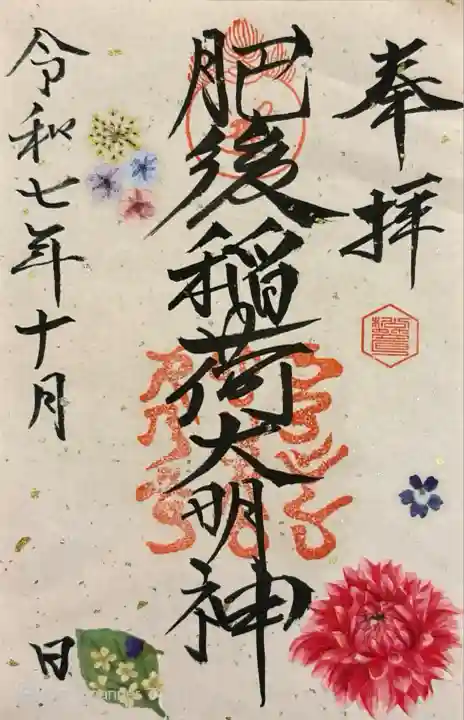 奉拝
肥後稲荷大明神
令和七年十月 日